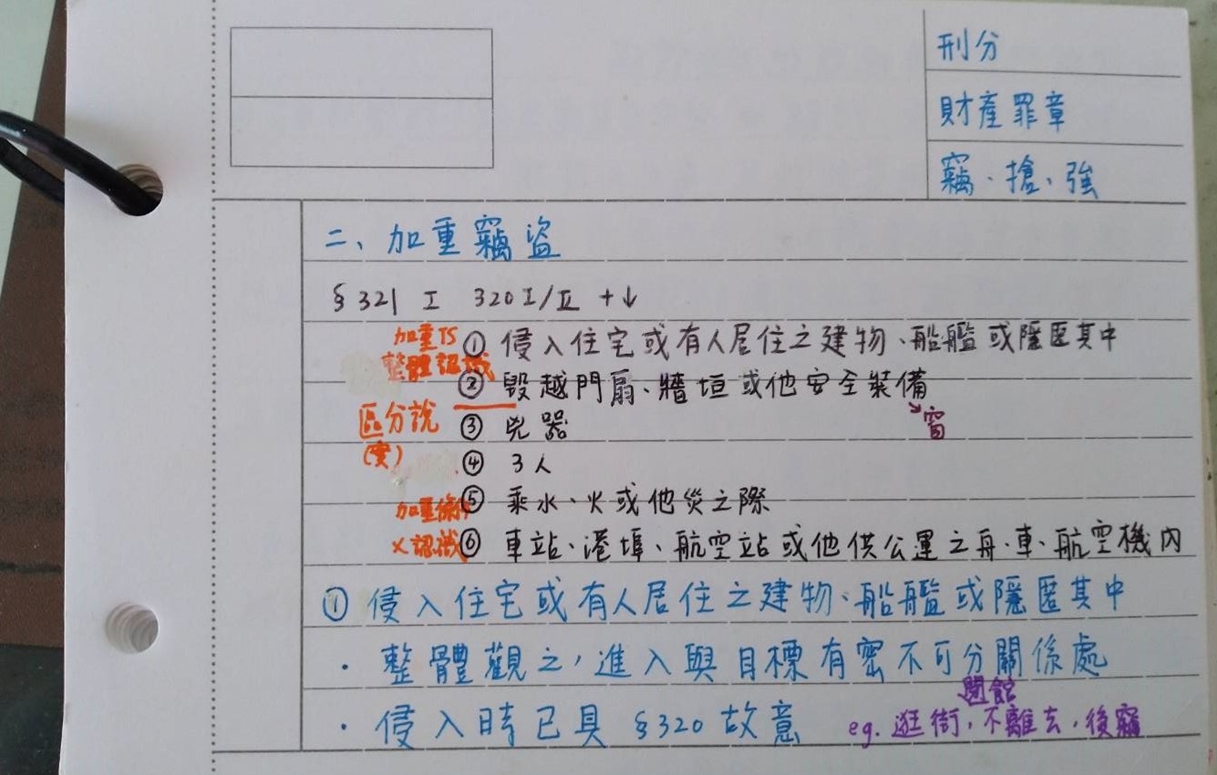 刑分
財產罪章
竊、搶、強
二、加重竊盜
§321 I 320I/II +↓
加重TS ① 侵入住宅或有人居住之建物、船艦或隱匿其中
整體認識 ② 毀越門扇、牆垣或他安全裝備
→窗
區分說 ③ 兇器
(實) ④ 3人
加重條件 ⑤ 乘水、火或他災之際
×認識 ⑥ 車站、港埠、航空站或他供公運之舟、車、航空機內
① 侵入住宅或有人居住之建物、船艦或隱匿其中
· 整體觀之，進入與目標有密不可分關係處
閉館
· 侵入時已具 §320 故意 eg. 逛街，不離去，後竊